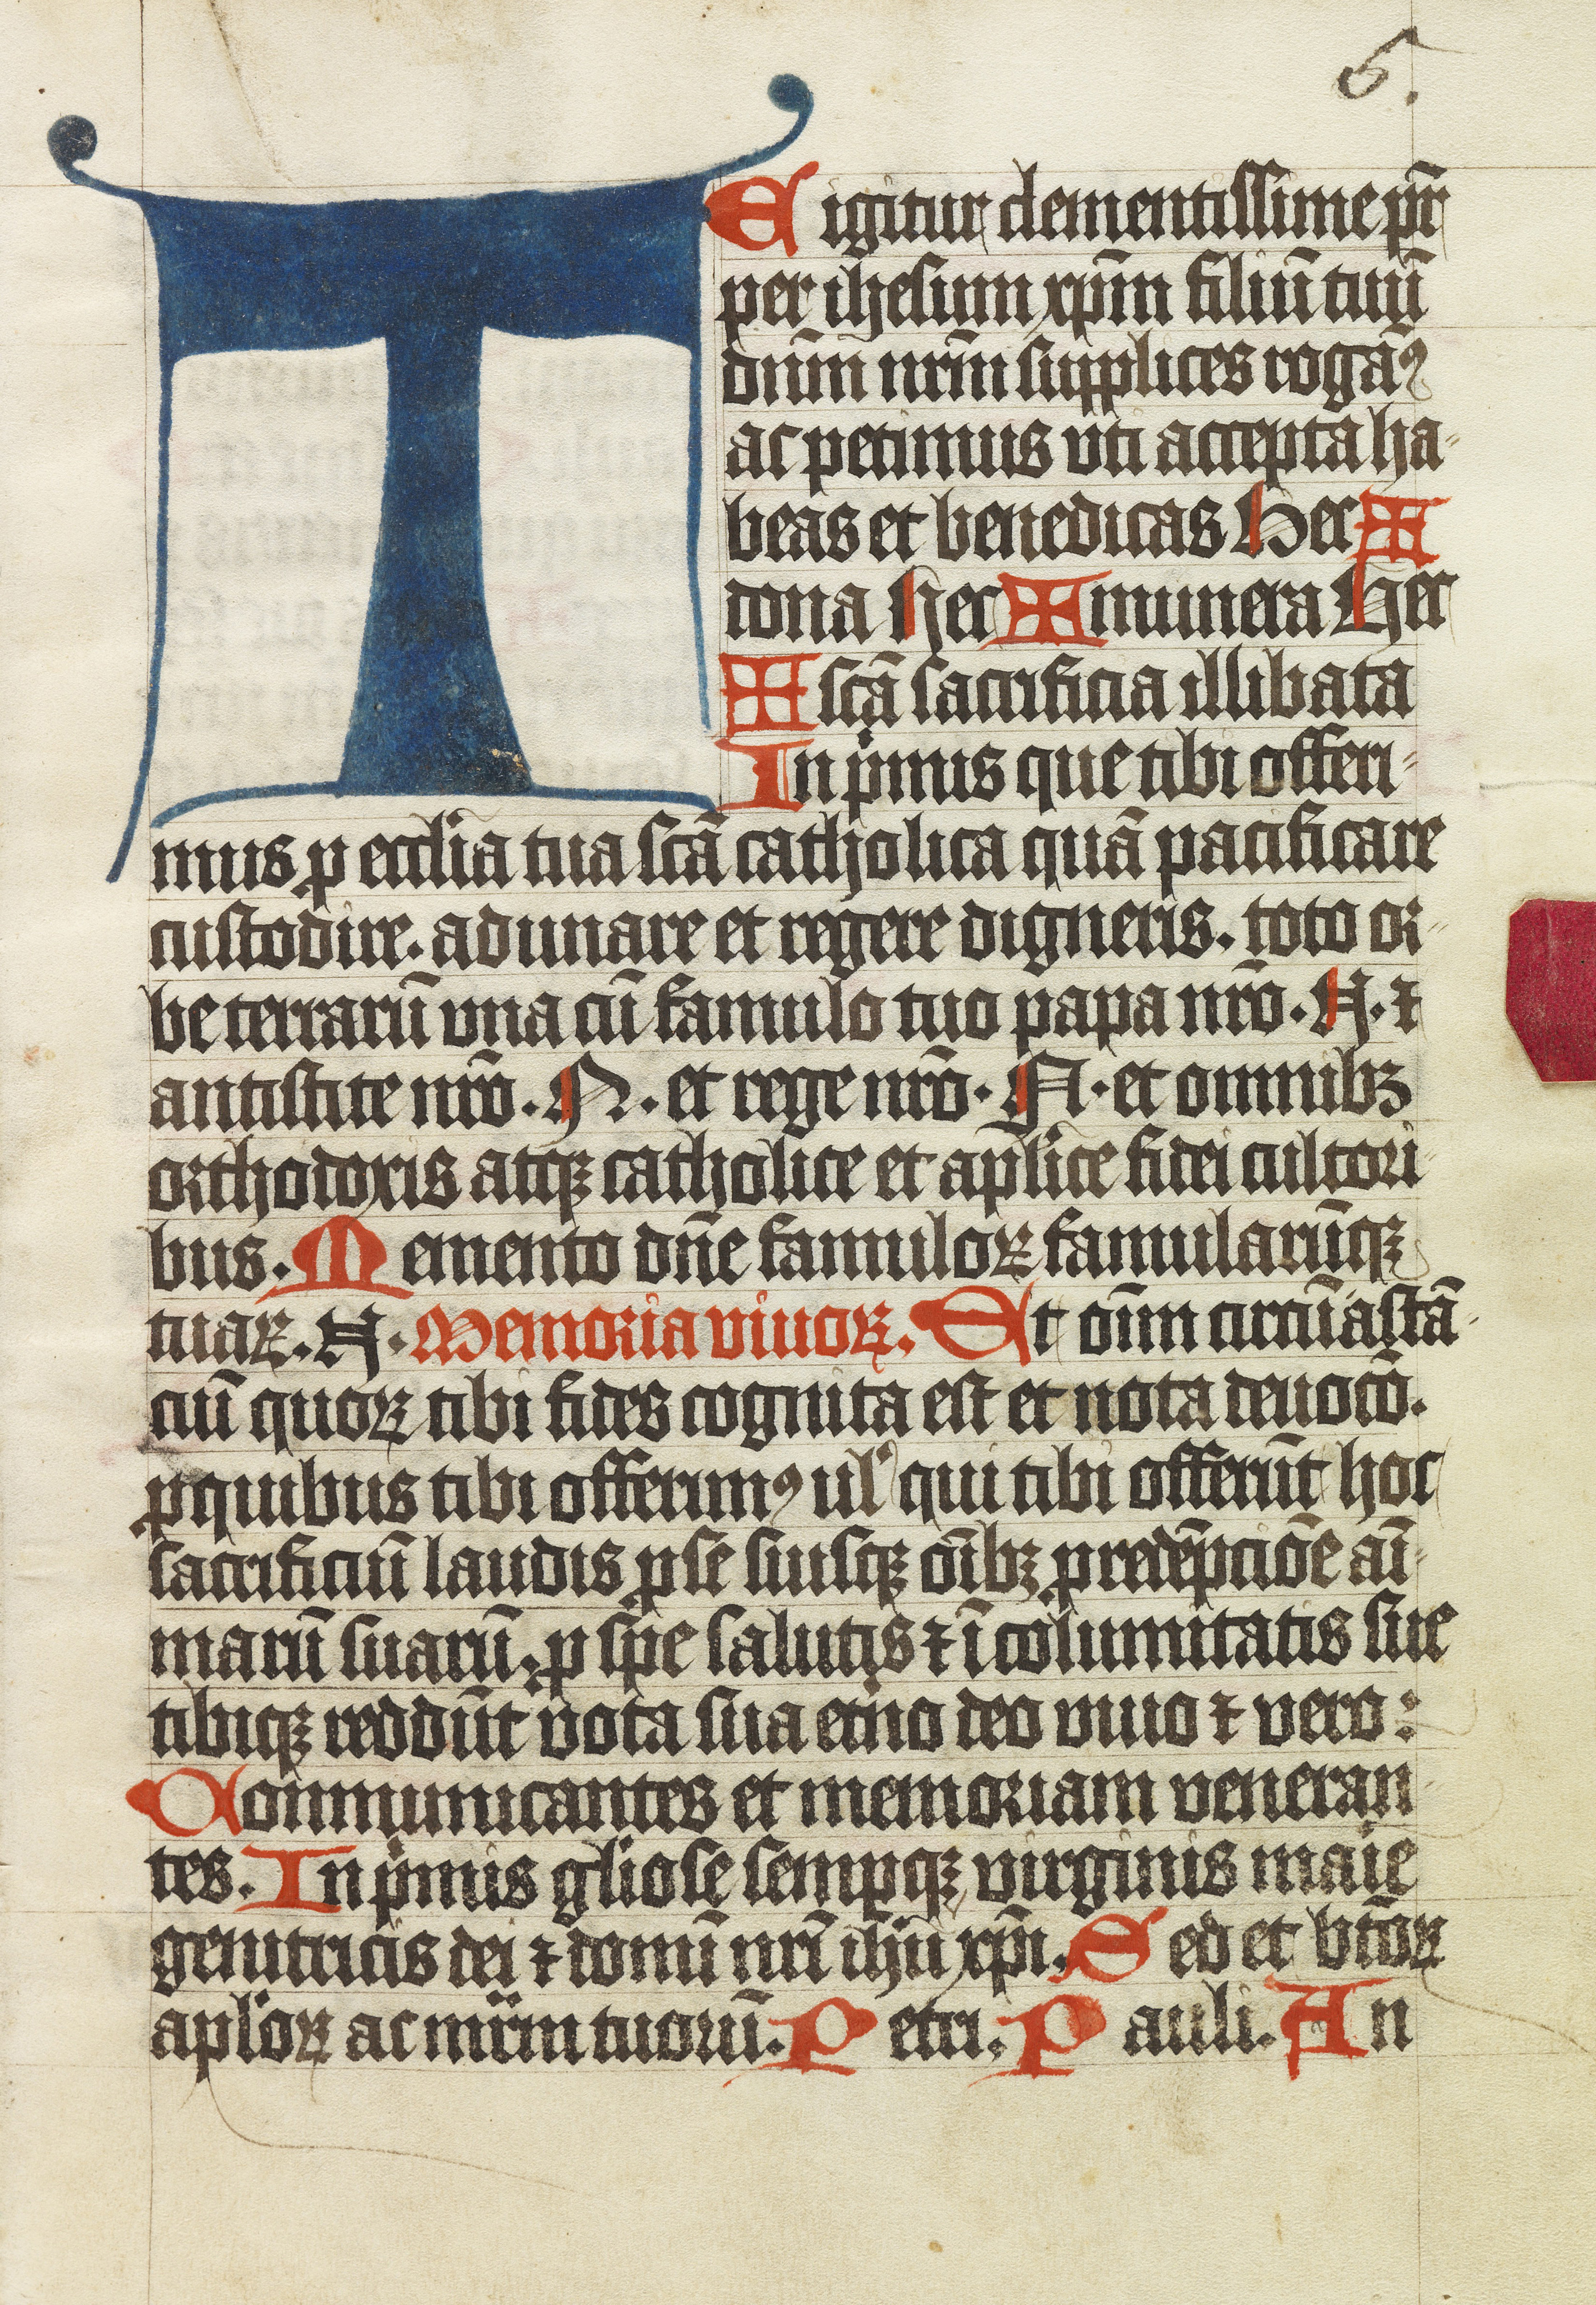 5.
TE igitur clementissime pr̄
per ihesum xpm̄ filiū tuū
dn̄m nr̄m supplices rogam̄ꝯ
ac petimus vti accepta ha-
beas et benedicas Hec ✠
dona hec ✠ munera Hec
✠ scā sacrificia illibata
In pͥmis que tibi offeri-
mus ꝓ eccl̄ia tua scā catholica quā pacificare
custodire. adunare et regere digneris. toto or-
be terrarū vna cū famulo tuo papa nr̄o. N. ⁊
antistite nr̄o. N. et rege nr̄o. N. et omnibꝫ
orthodoxis atqꝫ catholice et apl̄ice fidei cultori
bus. Memento dn̄e famuloꝝ famularūqꝫ
tuaꝝ. N. Memoria viuoꝝ. Et om̄ circūastā-
ciū quoꝝ tibi fides cognita est et nota deuocō.
ꝓ quibus tibi offerimꝯ ul̓ qui tibi offerūt hoc
sacrificiū laudis ꝓ se suisqꝫ oībꝫ ꝓ redēpciōe aī-
marū suarū. ꝓ spe salutis ⁊ īcolumitatis sue
tibiqꝫ reddūt vota sua et̓no deo viuo ⁊ vero:
Conmunicantes et memoriam veneran-
tes. In pͥmis gl̓iose semꝑqꝫ virginis maͥe
genitricis dei ⁊ domī nr̄i ihū xpī. Sed et btōꝝ
apl̓oꝝ ac mr̄m tuorū. Petri. Pauli. An